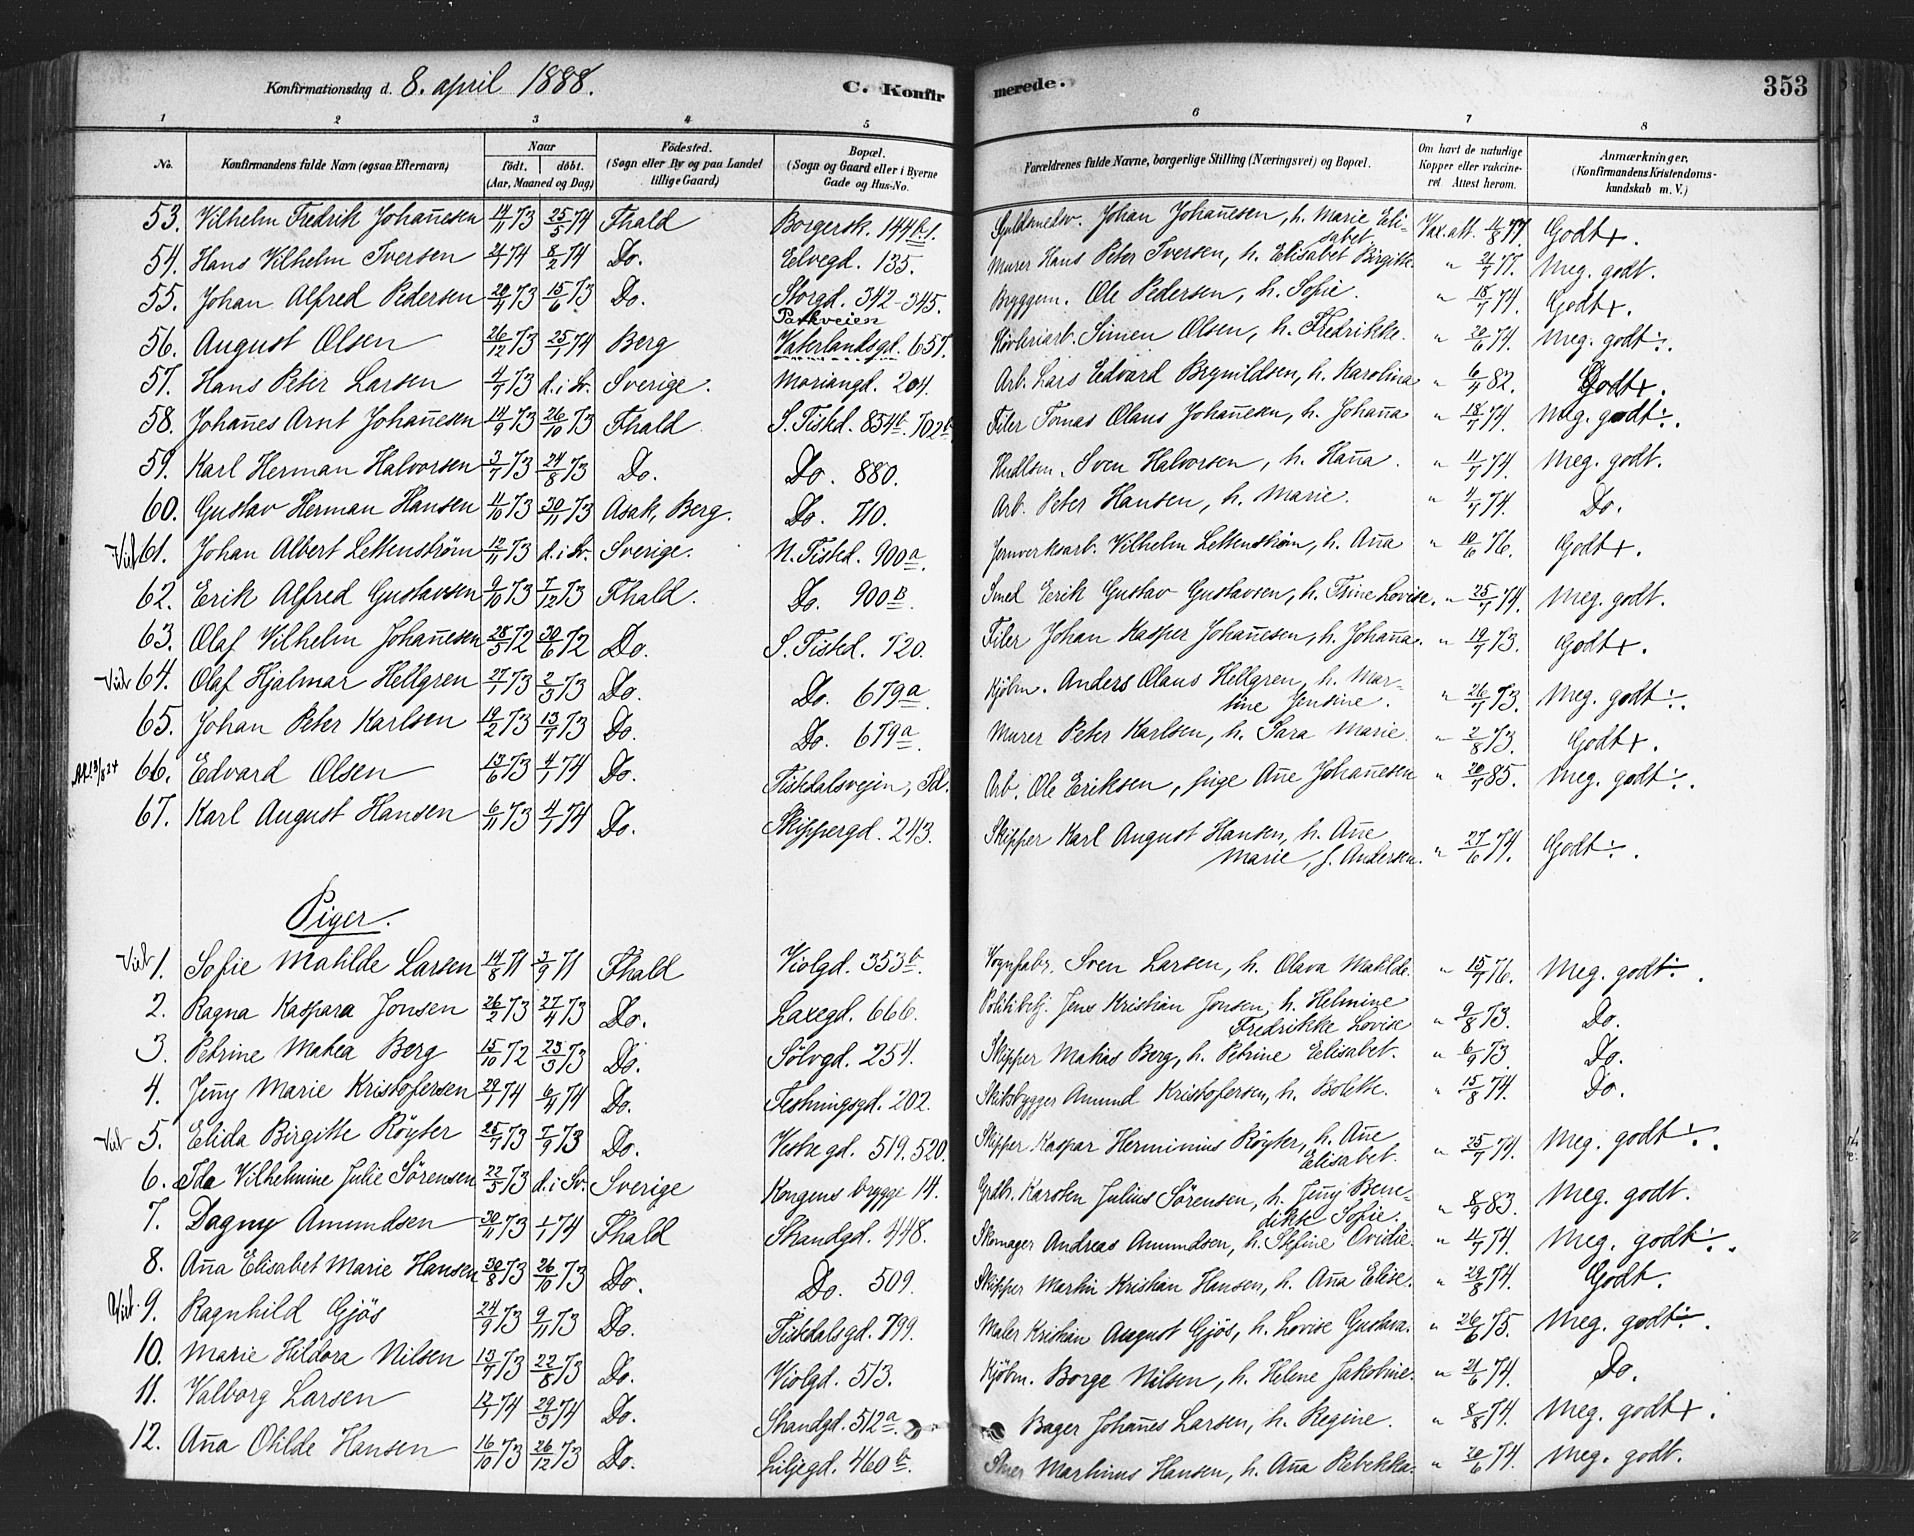 Konfirmationsdag d. 8. april 1888. C. Konfirmerede. 353
1 2 3 4 5 6 7 8
No. Konfirmandens fulde Navn (ogsaa Efternavn) Naar født, døbt. (Aar, Maaned og Dag) Födested. (Sogn eller By og paa Landet tillige Gaard) Bopæl. (Sogn og Gaard eller i Byerne Gade og Hus-No. Forældrenes fulde Navne, borgerlige Stilling (Næringsvei) og Bopæl. Om havt de naturlige Kopper eller vakcineret. Attest herom. Anmærkninger. (Konfirmandens Kristendomskundskab m. V.)
53. Vilhelm Fredrik Johan̄esen 14/11 73 25/5 74 Fhald Borgersk. 144 b.1. Guldsmedsv. Johan Johan̄esen, h. Marie Elisabet. Vax.att. 11/8 77 Godt+.
54. Hans Vilhelm Iversen 2/1 74 8/2 74 Do. Elvegd. 135. Murer Hans Peter Iversen, h. Elisabet Birgitte " 21/7 77. Meg. godt.
55. Johan Alfred Pedersen 20/4 73 15/6 73 Do. Storgd. 342-345. Bryggem. Ole Pedersen, h. Sofie. " 18/7 74. Godt+.
56. August Olsen 26/12 73 25/1 74 Berg Parkveien Vaterlandsgd. 657. Høvleriarb. Simen Olsen, h. Fredrikke. " 20/6 74. Meg. godt÷.
57. Hans Peter Larsen 4/7 73 d. i Sv. Sverige. Mariangd. 204. Arb. Lars Edvard Brynildsen, h. Karolina " 6/4 82. Godt+.
58. Johan̄es Arnt Johan̄esen 14/9 73 26/10 73 Fhald S. Tistd. 854 b. 702 b Filer Tomas Olaus Johan̄esen, h. Johan̄a " 18/7 74. Meg. godt÷.
59. Karl Herman Halvorsen 3/7 73 24/8 73 Do. Do. 880. Hndlsm. Sven Halvorsen, h. Han̄a. " 11/7 74. Meg. godt.
60. Gustav Herman Hansen 11/10 73 30/11 73 Asak, Berg. Do. 710. Arb. Peter Hansen, h. Marie. " 4/7 74. Do.
61. Johan Albert Lettenstrøm 12/11 73 d. i Sv. Sverige. N. Tistd. 900 a. Jernverksarb. Vilhelm Lettenstrøm, h. An̄a " 10/6 76. Godt+.
62. Erik Alfred Gustavsen 9/10 73 7/12 73 Fhald. Do. 900 B. Smed Erik Gustav Gustavsen, h. Trine Lovise. " 25/7 74. Meg. godt.
63. Olaf Vilhelm Johan̄esen 28/5 72 30/6 72 Do. S. Tistd. 720. Filer Johan Kasper Johan̄esen, h. Johan̄a. " 19/7 73. Godt+.
64. Olaf Hjalmar Hellgren 27/1 73 2/3 73 Do. Do. 679 a. Kjøbm. Anders Olaus Hellgren, h. Martine Jensine. " 26/7 73. Meg. godt÷.
65. Johan Peter Karlsen 19/2 73 13/7 73 Do. Do. 679 a. Murer Peter Karlsen, h. Sara Marie " 2/8 73. Godt+.
66. Edvard Olsen 13/6 73 4/1 74 Do. Tistdalsvejen, Td. Arb. Ole Eriksen, pige An̄e Johan̄esen " 20/7 85. Meg. godt÷.
67. Karl August Hansen 6/11 73 4/1 74 Do. Skippergd. 243. Skipper Karl August Hansen, h. An̄e Marie, f. Andersen. " 27/6 74. Godt÷.
Piger.
1. Sofie Matilde Larsen 14/8 71 3/9 71 Fhald Violgd. 353 b. Vognfabr. Sven Larsen, h. Olava Matilde. " 15/7 76. Meg. godt÷.
2. Ragna Kaspara Jonsen 26/2 73 27/4 73 Do. Laxegd. 666. Politibetj. Jens Kristian Jonsen, h. Helmine Fredrikke Lovise " 9/8 73. Do.
3. Petrine Matea Berg 15/10 72 23/3 73 Do. Sölvgd. 254. Skipper Matias Berg, h. Petrine Elisabet. " 6/9 73 Do.
4. Jen̄y Marie Kristofersen 29/1 74 6/4 74 Do. Festningsgd. 202. Skibsbygger Amund Kristofersen, h. Bolette. " 15/8 74. Do.
5. Elida Birgitte Röyter 25/7 73 7/9 73 Do. Vestregd. 519. 520. Skipper Kaspar Herminius Röyter, h. An̄e Elisabet. " 25/7 74. Meg. godt÷.
6. Ida Vilhelmine Julie Sörensen 22/5 73 d. i Sv. Sverige Kongens brygge 14. Karsten Julius Sörensen, h. Jen̄y Benedikte Sofie. " 8/9 83. Meg. godt.
7. Dagny Amundsen 30/11 73 1/1 74 Fhald Strandgd. 448. Skomager Andreas Amundsen, h. Stefine Ovidie. " 11/7 74. Meg. godt÷.
8. An̄a Elisabet Marie Hansen 30/8 73 26/10 73 Do. Do. 509. Skipper Martin Kristian Hansen, h. An̄a Elise. " 29/8 74. Godt.
9. Ragnhild Gjös 24/9 73 9/11 73 Do. Tistdalsgd. 799. Maler Kristian August Gjös, h. Lovise Gustava. " 26/6 75. Meg. godt÷.
10. Marie Hildora Nilsen 13/7 73 22/8 73 Do. Violgd. 513. Kjöbm. Borge Nilsen, h. Helene Jakobine. " 21/6 74. Do.
11. Valborg Larsen 12/1 74 29/3 74 Do. Strandgd. 512 a. Bager Johan̄es Larsen, h. Regine. " 8/8 74. Meg. godt+.
12. An̄a Otilde Hansen 16/10 73 26/12 73 Do. Liljegd. 460 b. Martinus Hansen, h. An̄a Rebekka. " 20/6 74. Meg. godt.